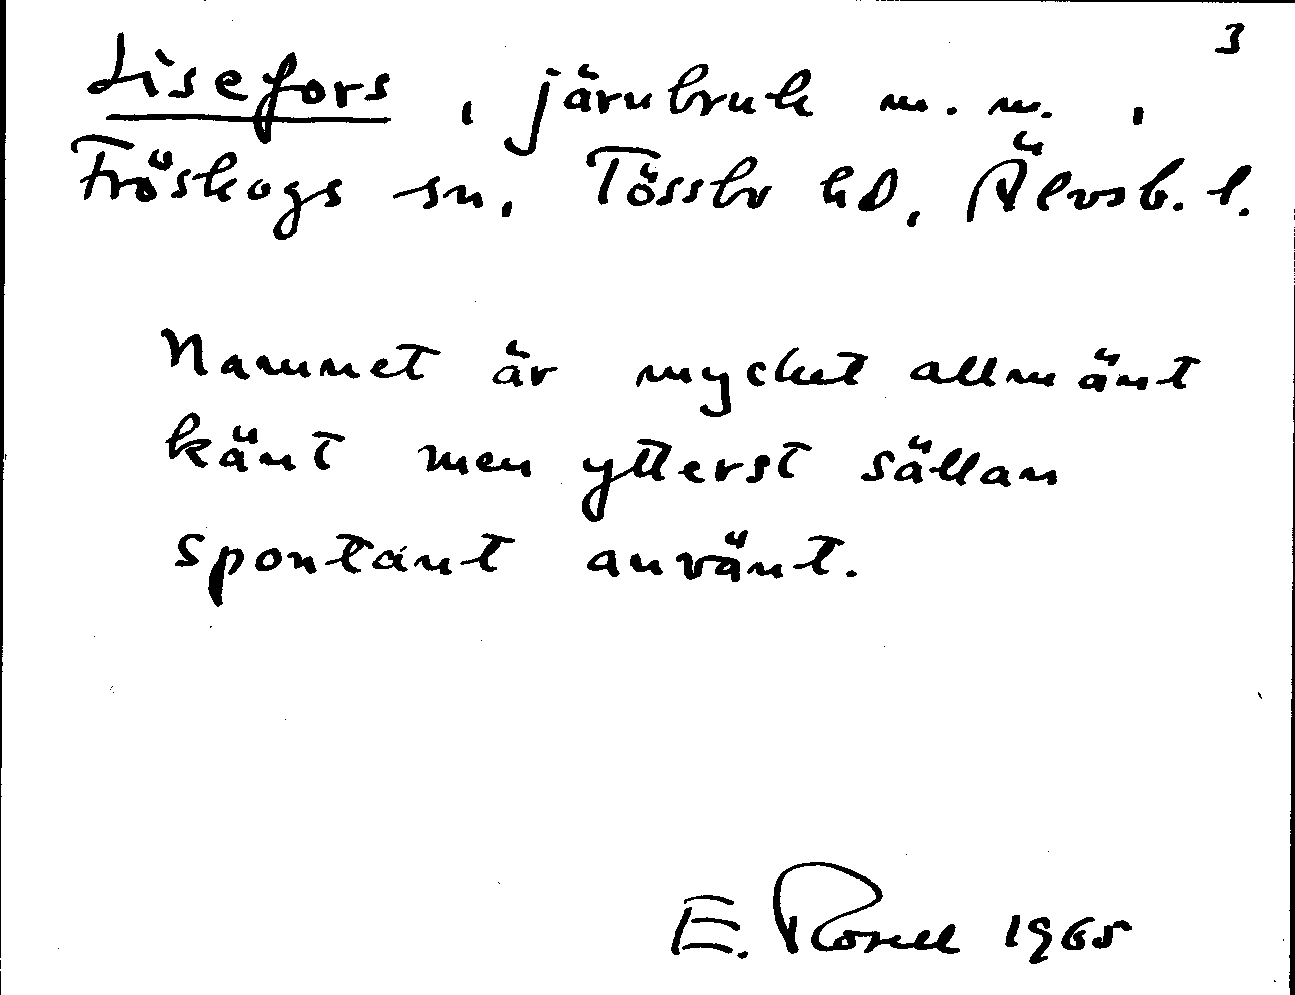 3
Lisefors, järnbruk m. m.,
Fröskogs sn, Tössbo hd, Älvsb. l.
Namnet är mycket allmänt
känt men ytterst sällan
spontant använt.
E. Rosell 1965